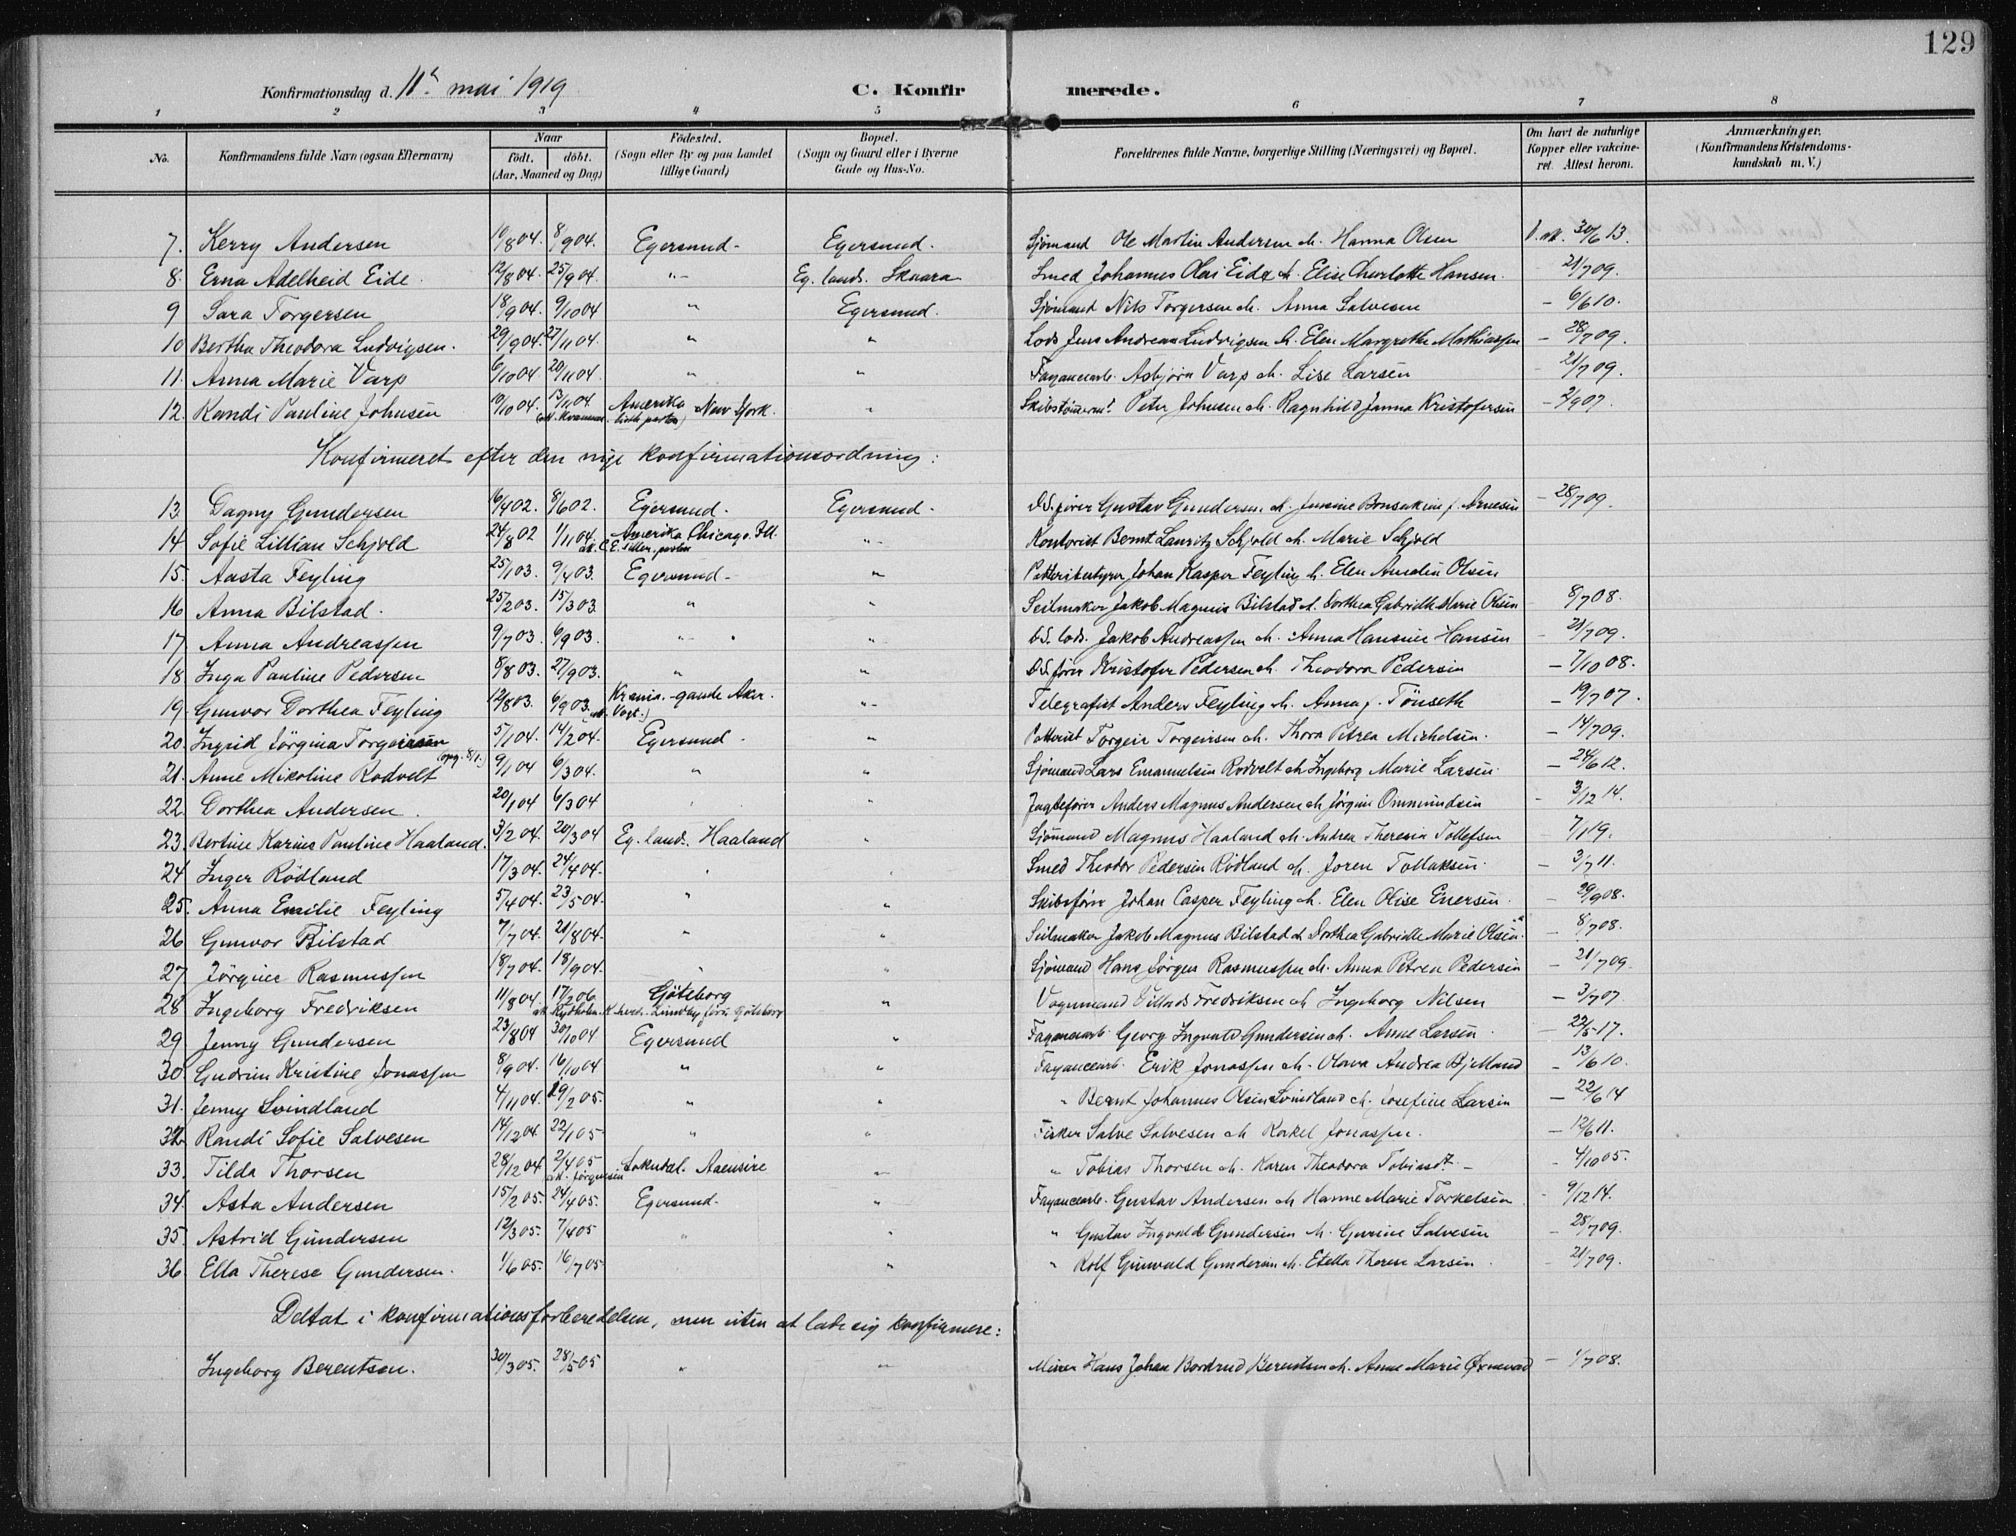 129
Konfirmationsdag d. 11te mai 1919 C. Konfirmerede.
1 2 3 4 5 6 7 8
No. Konfirmandens fulde Navn (ogsaa Efternavn) Naar födt. döbt. (Aar, Maaned og Dag) Födested. (Sogn eller By og paa Landet tillige Gaard) Bopæl. (Sogn og Gaard eller i Byerne Gade og Hus-No. Forældrenes fulde Navne, borgerlige Stilling (Næringsvei) og Bopæl. Om havt de naturlige Kopper eller vakcineret. Attest herom. Anmærkninger. (Konfirmandens Kristendomskundskab m. V.)
7. Kerry Andersen 10/8 04. 8/9 04. Egersund. Egersund. Sjømand Ole Martin Andersen & Hanna Olsen V. att. 30/6 13.
8. Erna Adelheid Eide. 12/8 04. 25/9 04. "- Eg. lands. Skaara Smed Johannes Olai Eide & Elise Charlotte Hansen. - 21/7 09.
9 Sara Torgersen 18/9 04. 9/10 04 " Egersund. Sjømand Nils Torgersen & Anna Salvesen - 6/6 10.
10 Bertha Theodora Ludvigsen. 29/9 04. 27/11 04. " " Lods Jens Andreas Ludvigsen & Elen Margrethe Mathiassen - 28/7 09.
11. Anna Marie Varp 6/10 04 20/11 04. " " Fayancearb. Asbjørn Varp & Lise Larsen - 21/7 09.
12. Randi Pauline Johnsen 10/10 04. 13/11 04. Amerika New York. " Skibstømerm. Peter Johnsen & Ragnhild Janna Kristofersen - 2/9 07.
Konfirmeret efter den nye konfirmationsordning:
13. Dagny Gundersen 16/4 02. 8/6 02. Egersund. Egersund. D.S. fører Gustav Gundersen & Jensine f. Arnesen - 28/7 09.
14. Sofie Lillian Schjold 24/8 02 1/11 04. Amerika Chicago. Ill. "- Kontorist Bernt Lauritz Schjold & Marie Schjold
15. Aasta Feyling 25/1 03. 9/4 03. Egersund - " Johan Kasper Feyling & Elen Amalie Olsen
16 Anna Bilstad. 25/2 03. 15/3 03. " " Seilmaker Jakob Magnus Bilstad & Dorthea Gabrielle Marie Olsen - 8/7 08.
17. Anna Andreassen 9/7 03. 6/9 03. "- " Lods. Jakob Andreassen & Anna Hansine Hansen - 21/7 09.
18 Inga Pauline Pedersen 8/8 03. 27/9 03. " " D.S. fører Kristofer Pedersen & Theodora Pedersen - 7/10 08.
19. Gunvor Dorthea Feyling 12/8 03. 6/9 03. Krania. -gande Aker. "- Telegrafist Anders Feyling & Anna f. Tönseth - 19/7 07.
20. Ingrid Jørgina Torgersen 5/1 04. 14/2 04. Egersund - Torgeir Torgersen & Thora Petrea Michelsen. - 14/7 09.
21. Anne Mikoline Rodvelt 9/1 04 6/3 04. " " Sjømand Lars Emanuelsen Rodvelt & Ingeborg Marie Larsen. - 24/6 12.
22. Dorthea Andersen. 20/1 04 6/3 04 " " Jagtefører Anders Magnus Andersen & Jørgine Ommundsen - 3/12 14.
23. Bertine Karine Pauline Haaland. 3/2 04. 20/3 04 Eg. lands. Haaland " Sjømand Magnus Haaland & Andrea Theresia Tollefsen - 7/1 19.
24 Inger Rödland 17/3 04. 24/4 04. " " Smed Theodor Pedersen Rödland & Joren Tollaksen. - 3/7 11.
25. Anna Emilie Feyling 5/4 04. 23/5 04. " " Skibsfører Johan Casper Feyling & Elen Olise Enersen. - 29/9 08.
26 Gunvor Bilstad 7/7 04. 21/8 04. " " Seilmaker Jakob Magnus Bilstad & Dorthea Gabrielle Marie Olsen. - 8/7 08.
27 Jörgine Rasmussen 18/7 04. 18/9 04. " " Sjømand Hans Jörgen Rasmussen & Anna Petrea Pedersen - 21/7 09.
28 Ingeborg Fredriksen 11/8 04. 17/2 06. Göteborg " Vognmand Fredriksen & Ingeborg Nilsen - 3/7 07.
29. Jenny Gundersen 23/8 04 30/10 04 Egersund " Fayancearb. Georg Ingvald Gundersen & Anne Larsen. - 22/5 17.
30. Gudrun Kristine Jonassen 8/9 04. 16/10 04 " " Fayancearb. Erik Jonassen & Olava Andrea Bjelland - 13/6 10.
31. Jenny Svindland 4/11 04. 19/2 05. " " " Bernt Johannes Olsen Svindland & Josefine Larsen - 22/6 14
32. Randi Sofie Salvesen 14/12 04. 22/1 05. " " Fisker Salve Salvesen & Rakel Jonassen. - 12/6 11.
33. Tilda Thorsen 28/12 04. 2/4 05. Sokndal. Aaensire " " Tobias Thorsen & Karen Theodora Tobiasdt. - 4/10 05.
34. Asta Andersen 15/2 05. 24/4 05. Egersund. " Fayancearb. Gustav Andersen & Hanne Marie Torkelsen - 9/12 14.
35. Astrid Gundersen 12/3 05. 7/4 05 " " " Gustav Ingvald Gundersen & Gurine Salvesen - 28/7 09.
36. Ella Therese Gundersen. 1/6 05. 16/7 05 " " " Rolf Gunvald Gundersen & Etella Therese Larsen. 21/7 09.
Deltat i konfirmationsforberedelsen, men uten at lade sig konfirmere:
Ingeborg Berentsen. 30/3 05. 28/5 05 " " Murer Hans Johan Berentsen & Anne Marie Öxnevad - 1/7 08.